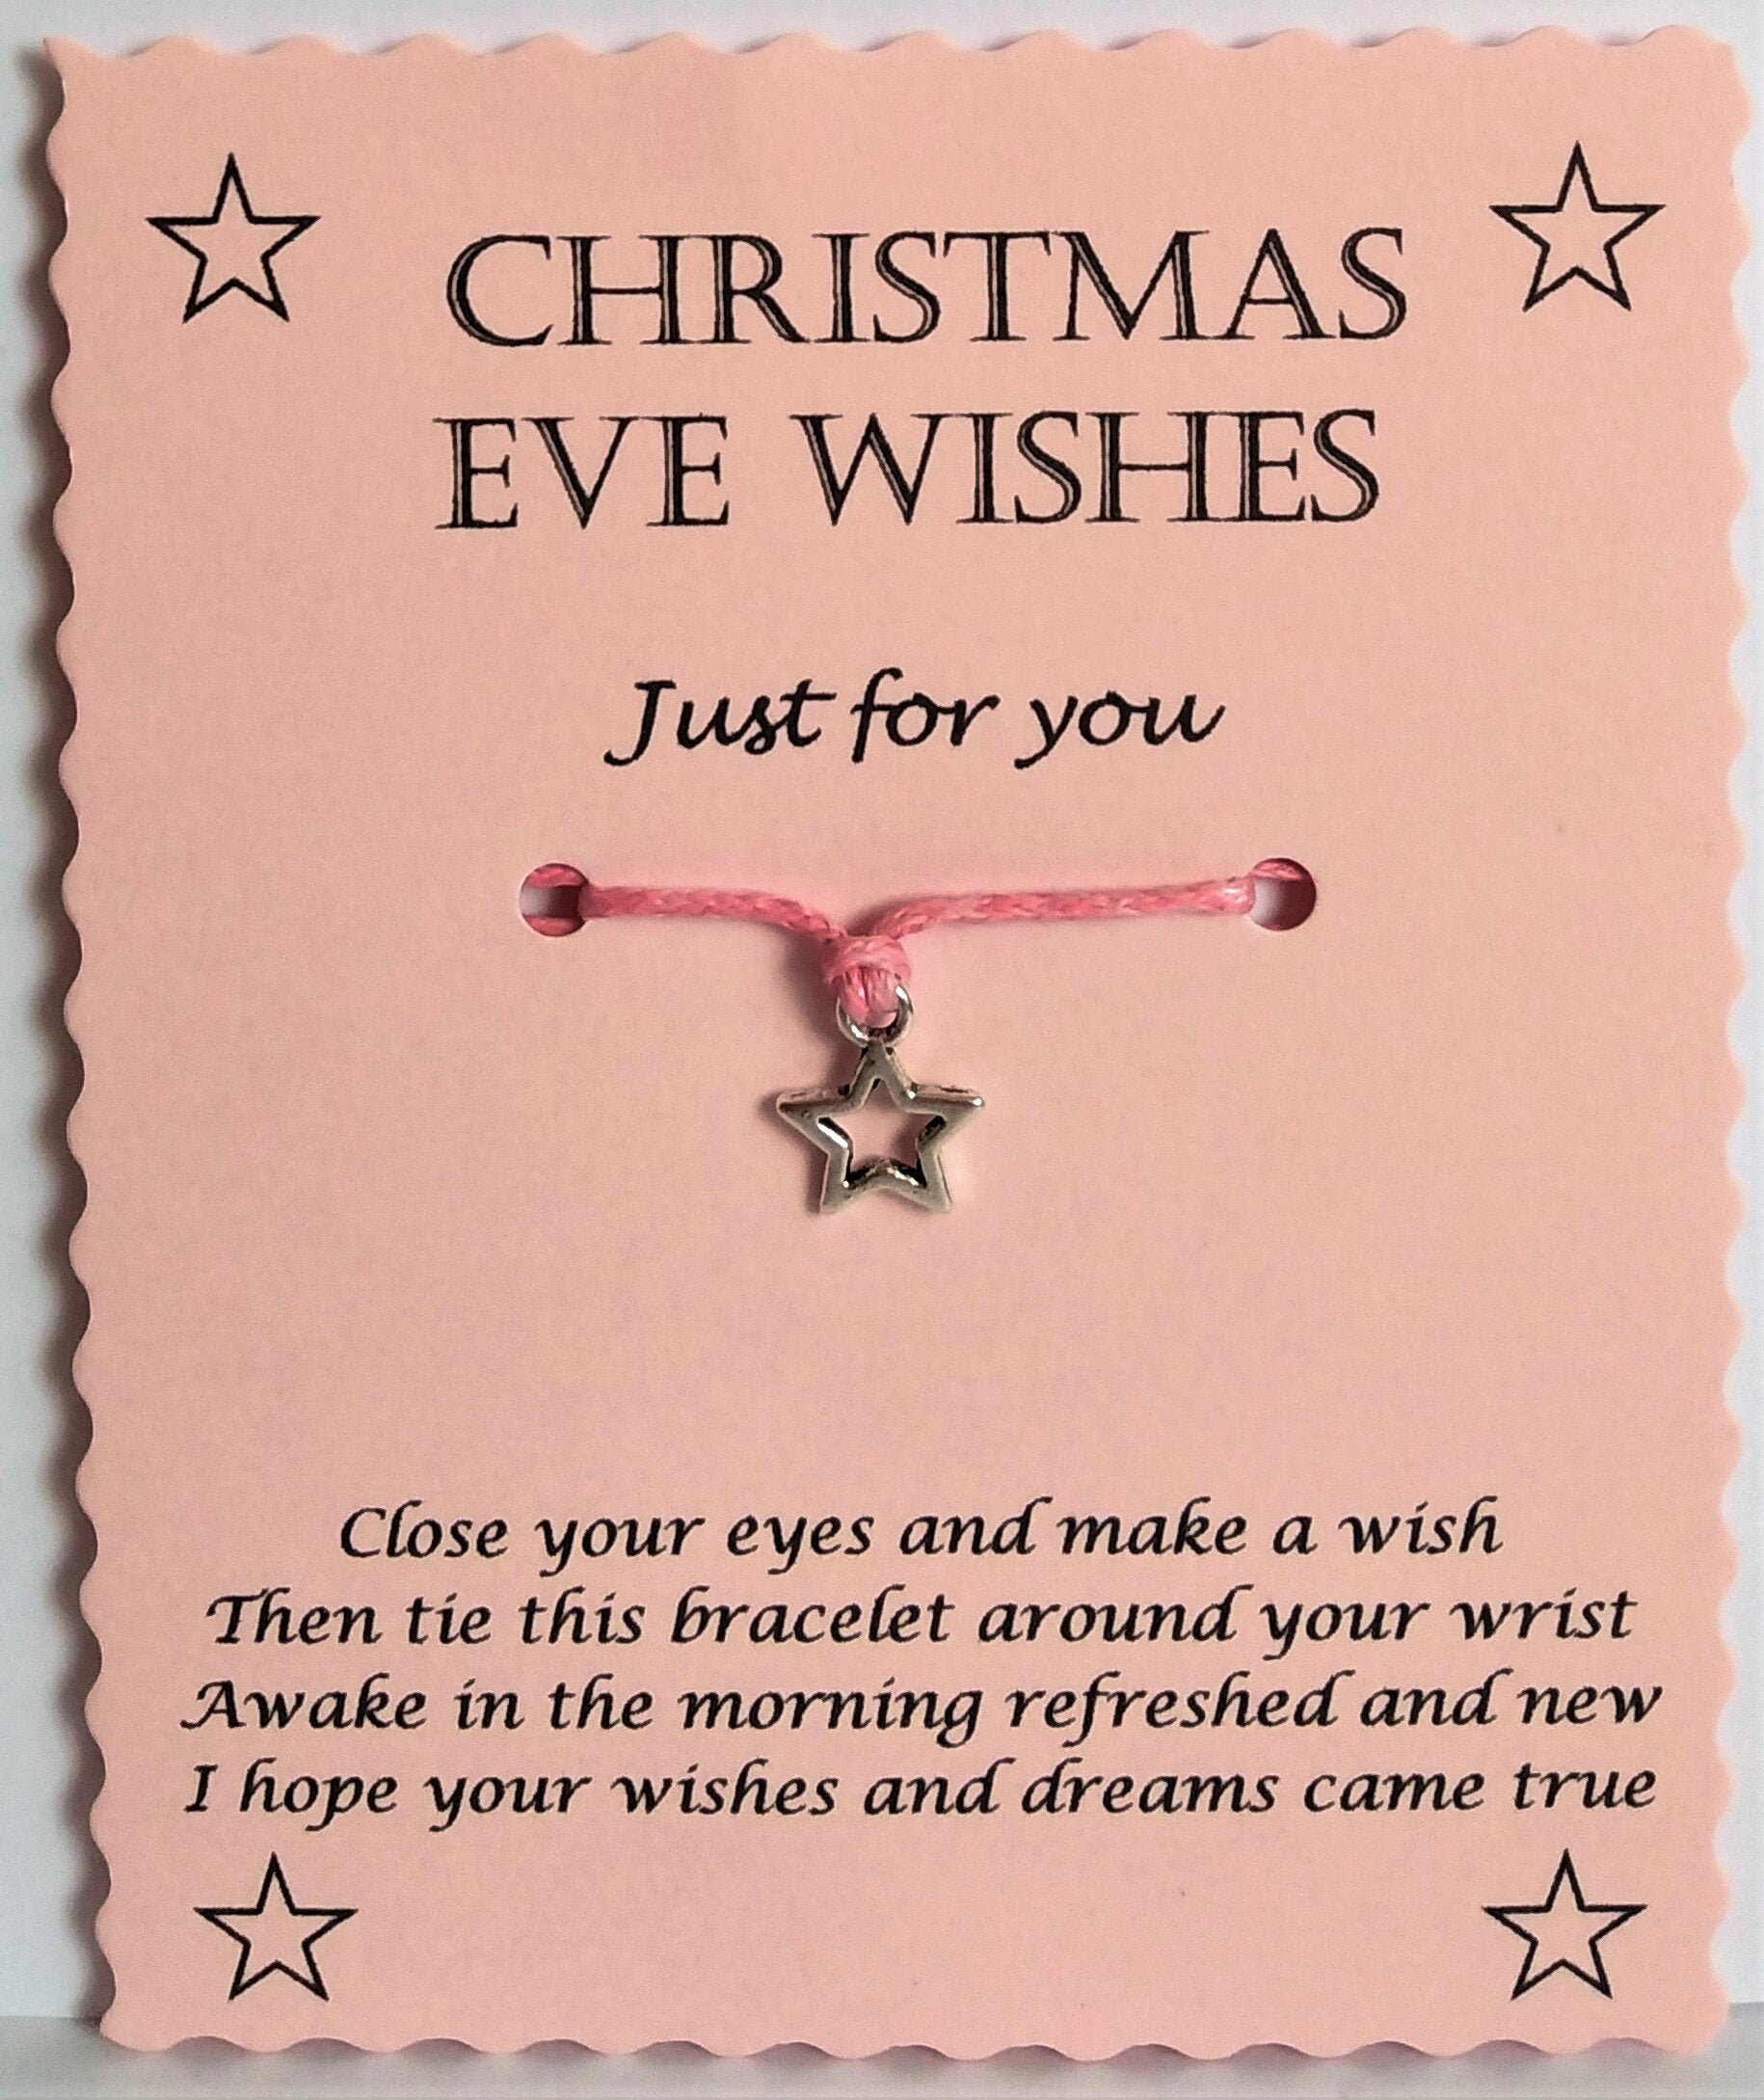 CHRISTMAS
EVE WISHES
Just for you
Close your eyes and make a wish
Then tie this bracelet around your wrist
Awake in the morning refreshed and new
I hope your wishes and dreams came true